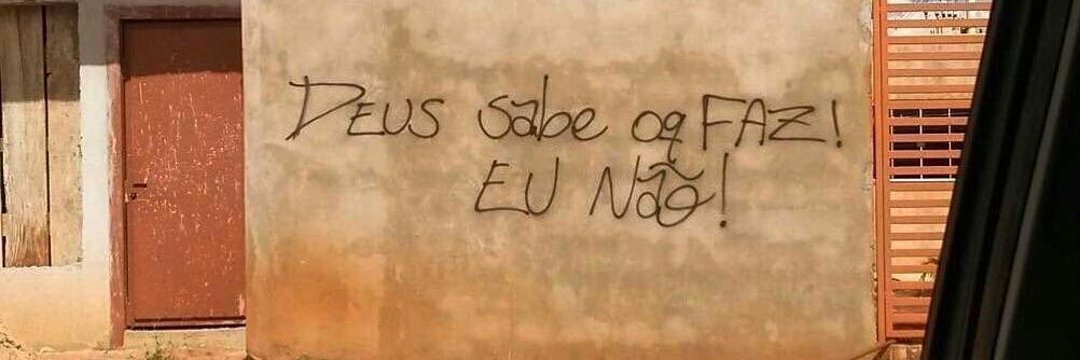 DEUS sabe oq FAZ!
EU Não!